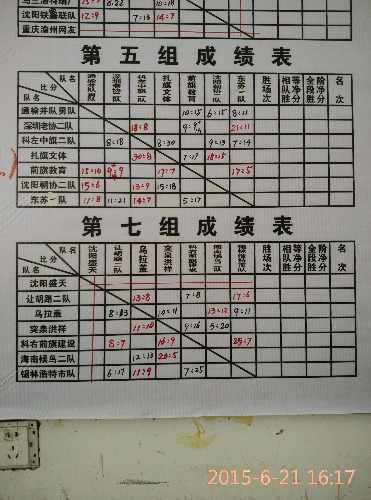 沈阳铁酋联队 12:9 7:13 14:7
重庆渝州网友
第五组成绩表
队名 比分 队名 通榆井队男队 深圳老协二队 科左中旗二队 扎旗文体 前旗教育 沈阳朝协二队 东苏一队 胜场次 相等队净胜分 全阶段净胜分 名次
通榆井队男队 10:15 6:15 8:11
深圳老协二队 18:8 9:9 21:11
科左中旗二队 8:18 8:30 9:13 7:14
扎旗文体 30:8 7:17 18:15
前旗教育 15:10 9:9 17:7 17:5
沈阳朝协二队 15:6 13:9 15:18
东苏一队 11:8 11:21 14:7 5:17
第七组成绩表
队名 比分 队名 沈阳盛天 让胡路二队 乌拉盖 突泉洪祥 科右前旗建设 海南候鸟二队 锡林浩特市队 胜场次 相等队净胜分 全阶段净胜分 名次
沈阳盛天
让胡路二队 13:8 7:8 17:6
乌拉盖 8:13 10:11 13:12 9:11
突泉洪祥 11:10 9:16 5:20
科右前旗建设 8:7 16:9 25:7
海南候鸟二队 12:13 20:5
锡林浩特市队 6:17 11:9 7:25
2015-6-21 16:17